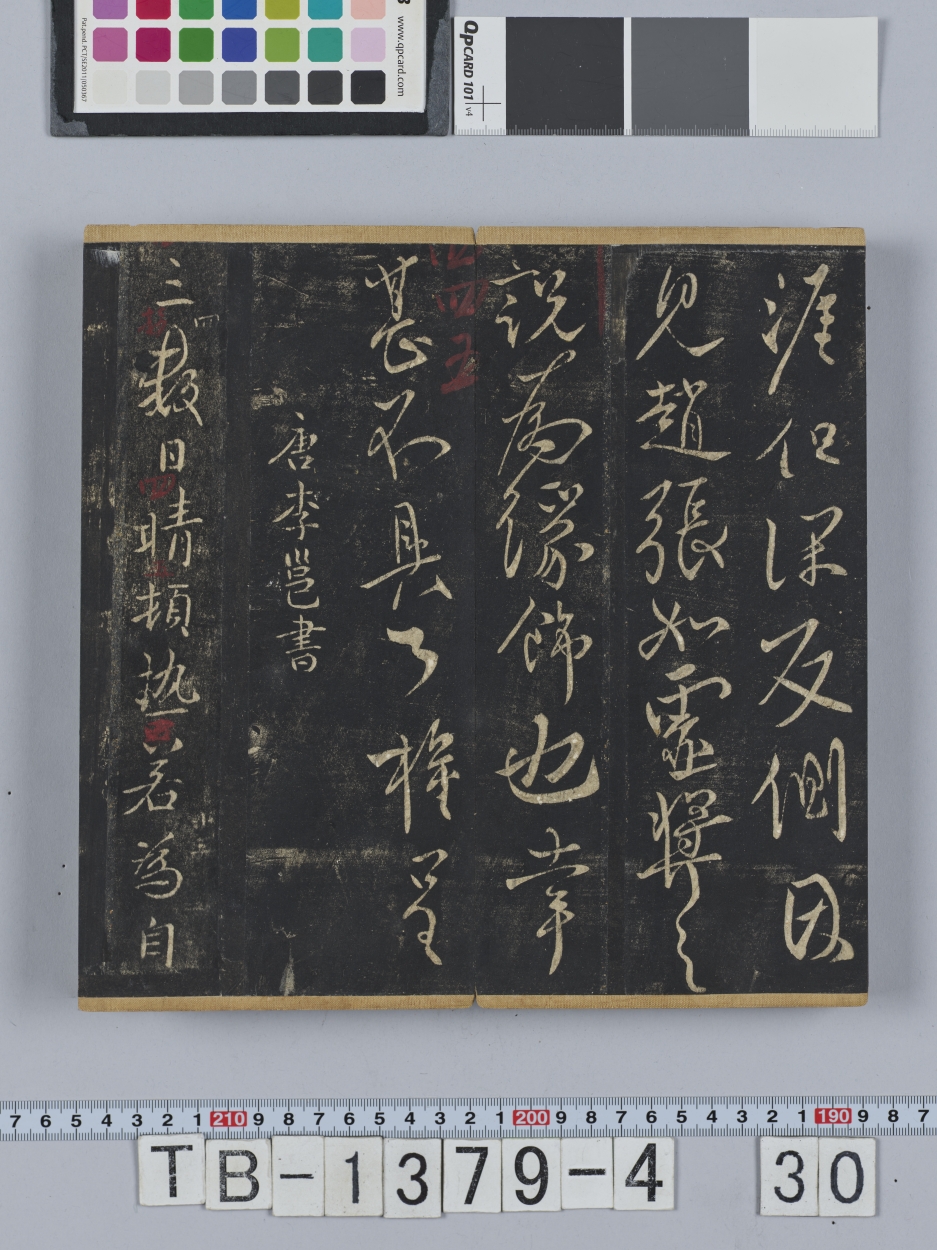 涯但深反側因
見趙張如靈將之
說為緣飾也幸
甚不具公權呈
唐李邕書
三數日晴頓熱兄若為自
四五
QPCARD 101 v4
www.qpcard.com
Pat.pend. PCT/SE2011/050367
7 6 5 4 3 2 1 210 9 8 7 6 5 4 3 2 1 200 9 8 7 6 5 4 3 2 1 190 9 8 7
TB-1379-4 30